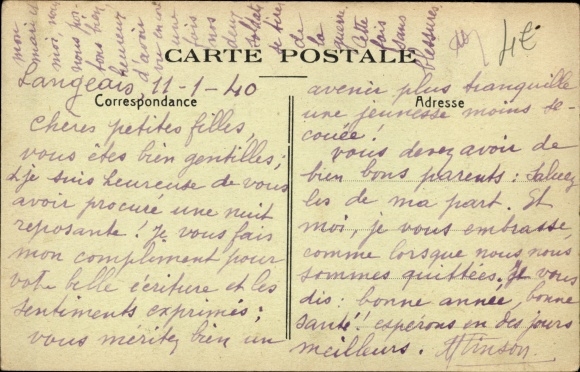 CARTE POSTALE
Langeais, 11-1-40
Correspondance
Chères petites filles,
vous êtes bien gentilles;
& je suis heureuse de vous
avoir procuré une nuit
reposante! Je vous fais
mon compliment pour
votre belle écriture et les
sentiments exprimés;
vous méritez bien un
Adresse
avenir plus tranquille
une jeunesse moins se-
couée!
Vous devez avoir de
bien bons parents: Saluez
les de ma part. Et
moi, je vous embrasse,
comme lorsque nous nous
sommes quittées, Je vous
dis: bonne année, bonne
santé! espérons en des jours
meilleurs.
mon
mari et
moi, nous
nous por-
tons bien,
heureux
d'avoir
encore
une
fois
nos
deux
soldats
de tirés
de
la
guerre
Cette
fois
sans
blessures
4€